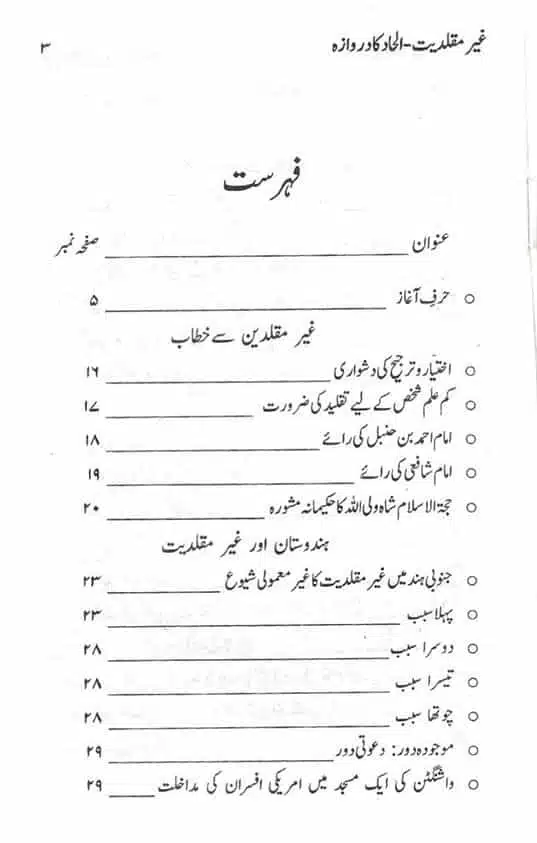 غیر مقلدیت-الحاد کا دروازہ ۳
فہرست
عنوان ______ صفحہ نمبر
○ حرفِ آغاز ______ ۵
غیر مقلدین سے خطاب
○ اختیار و ترجیح کی دشواری ______ ۱۶
○ کم علم شخص کے لیے تقلید کی ضرورت ______ ۱۷
○ امام احمد بن حنبل کی رائے ______ ۱۸
○ امام شافعی کی رائے ______ ۱۹
○ حجۃ الاسلام شاہ ولی اللہ کا حکیمانہ مشورہ ______ ۲۰
ہندوستان اور غیر مقلدیت
○ جنوبی ہند میں غیر مقلدیت کا غیر معمولی شیوع ______ ۲۳
○ پہلا سبب ______ ۲۳
○ دوسرا سبب ______ ۲۸
○ تیسرا سبب ______ ۲۸
○ چوتھا سبب ______ ۲۸
○ موجودہ دور: دعوتی دور ______ ۲۹
○ واشنگٹن کی ایک مسجد میں امریکی افسران کی مداخلت ______ ۲۹